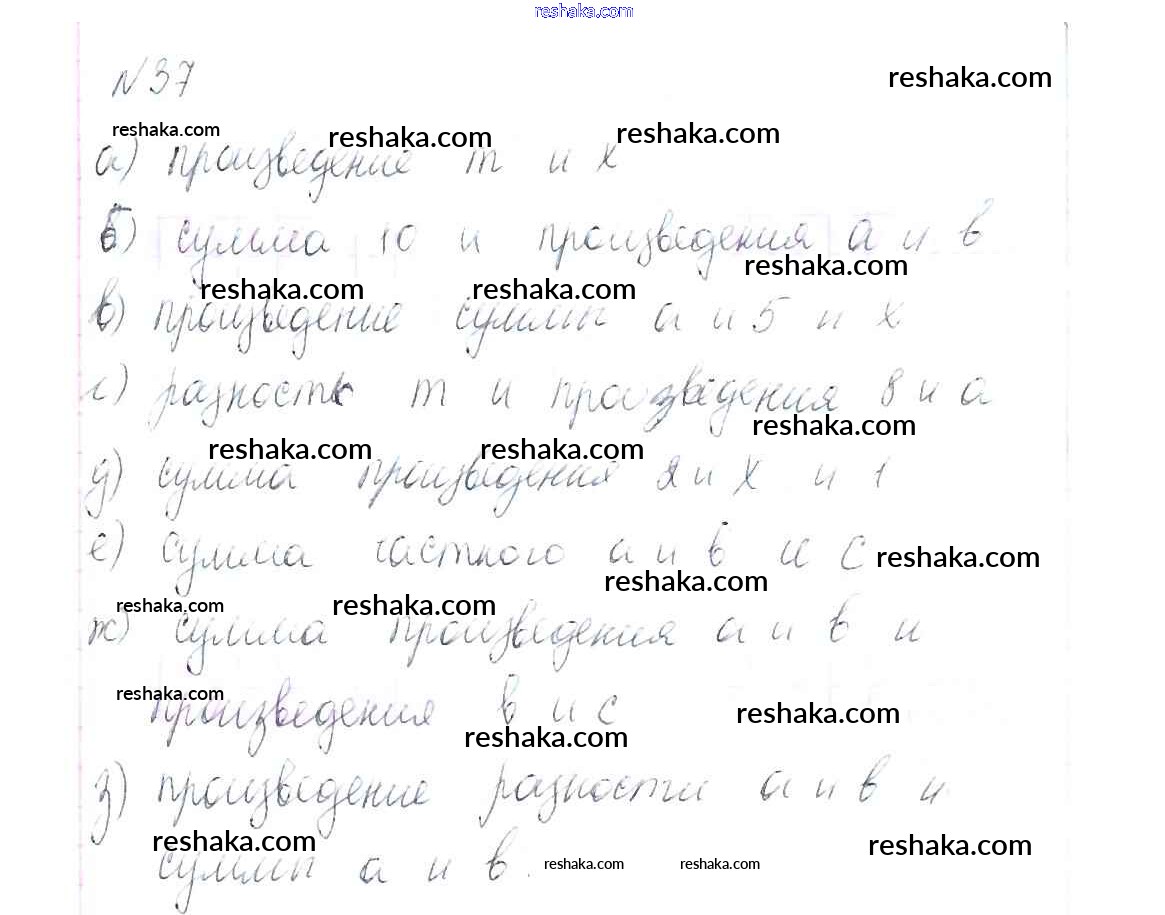 reshaka.com
№37
reshaka.com
reshaka.com reshaka.com reshaka.com
а) произведение m и x
б) сумма 10 и произведения а и в
reshaka.com
reshaka.com reshaka.com
в) произведение суммы а и 5 и х
г) разность m и произведения 8 и а
reshaka.com
reshaka.com reshaka.com
д) сумма произведения 2 и х и 1
е) сумма частного а и в и с
reshaka.com
reshaka.com
reshaka.com reshaka.com
ж) сумма произведения а и в и
reshaka.com
произведения в и с
reshaka.com
reshaka.com
з) произведение разности а и в и
reshaka.com reshaka.com
суммы а и в.
reshaka.com reshaka.com